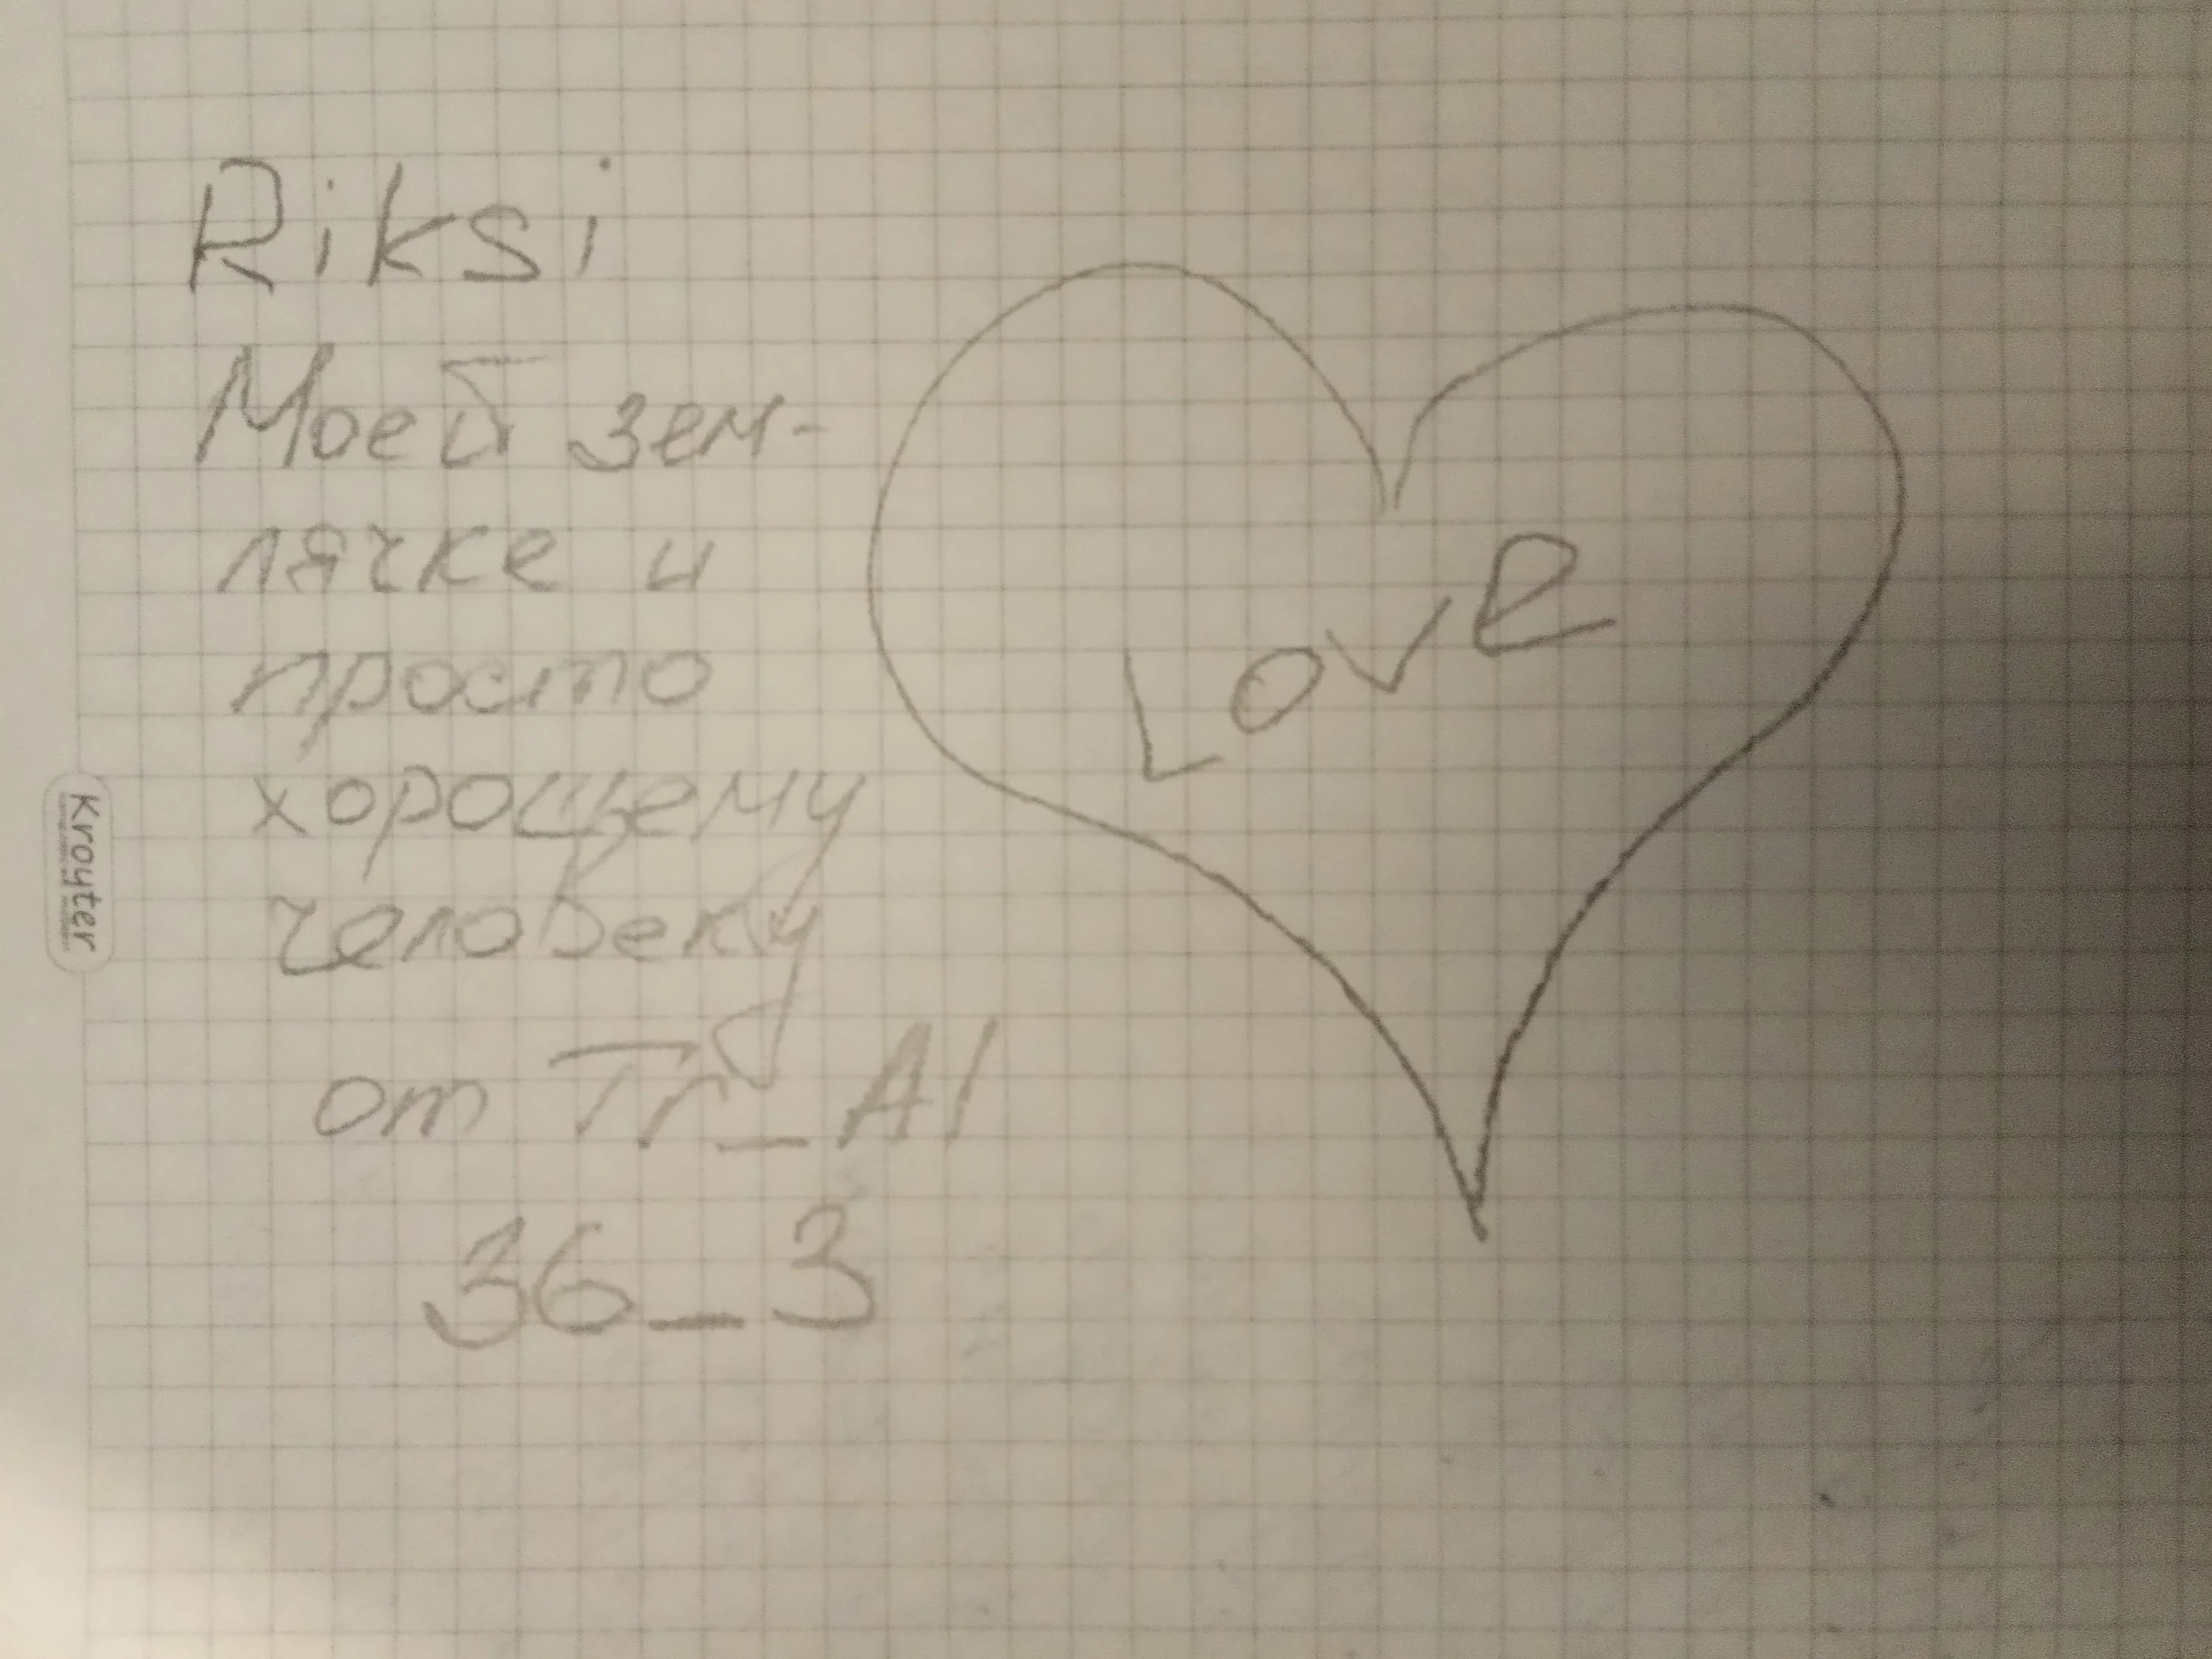 Riksi
Моей зем-
лячке и
просто
хорошему
человеку
от Tr_Al
36_3
LOVE
Kroyter